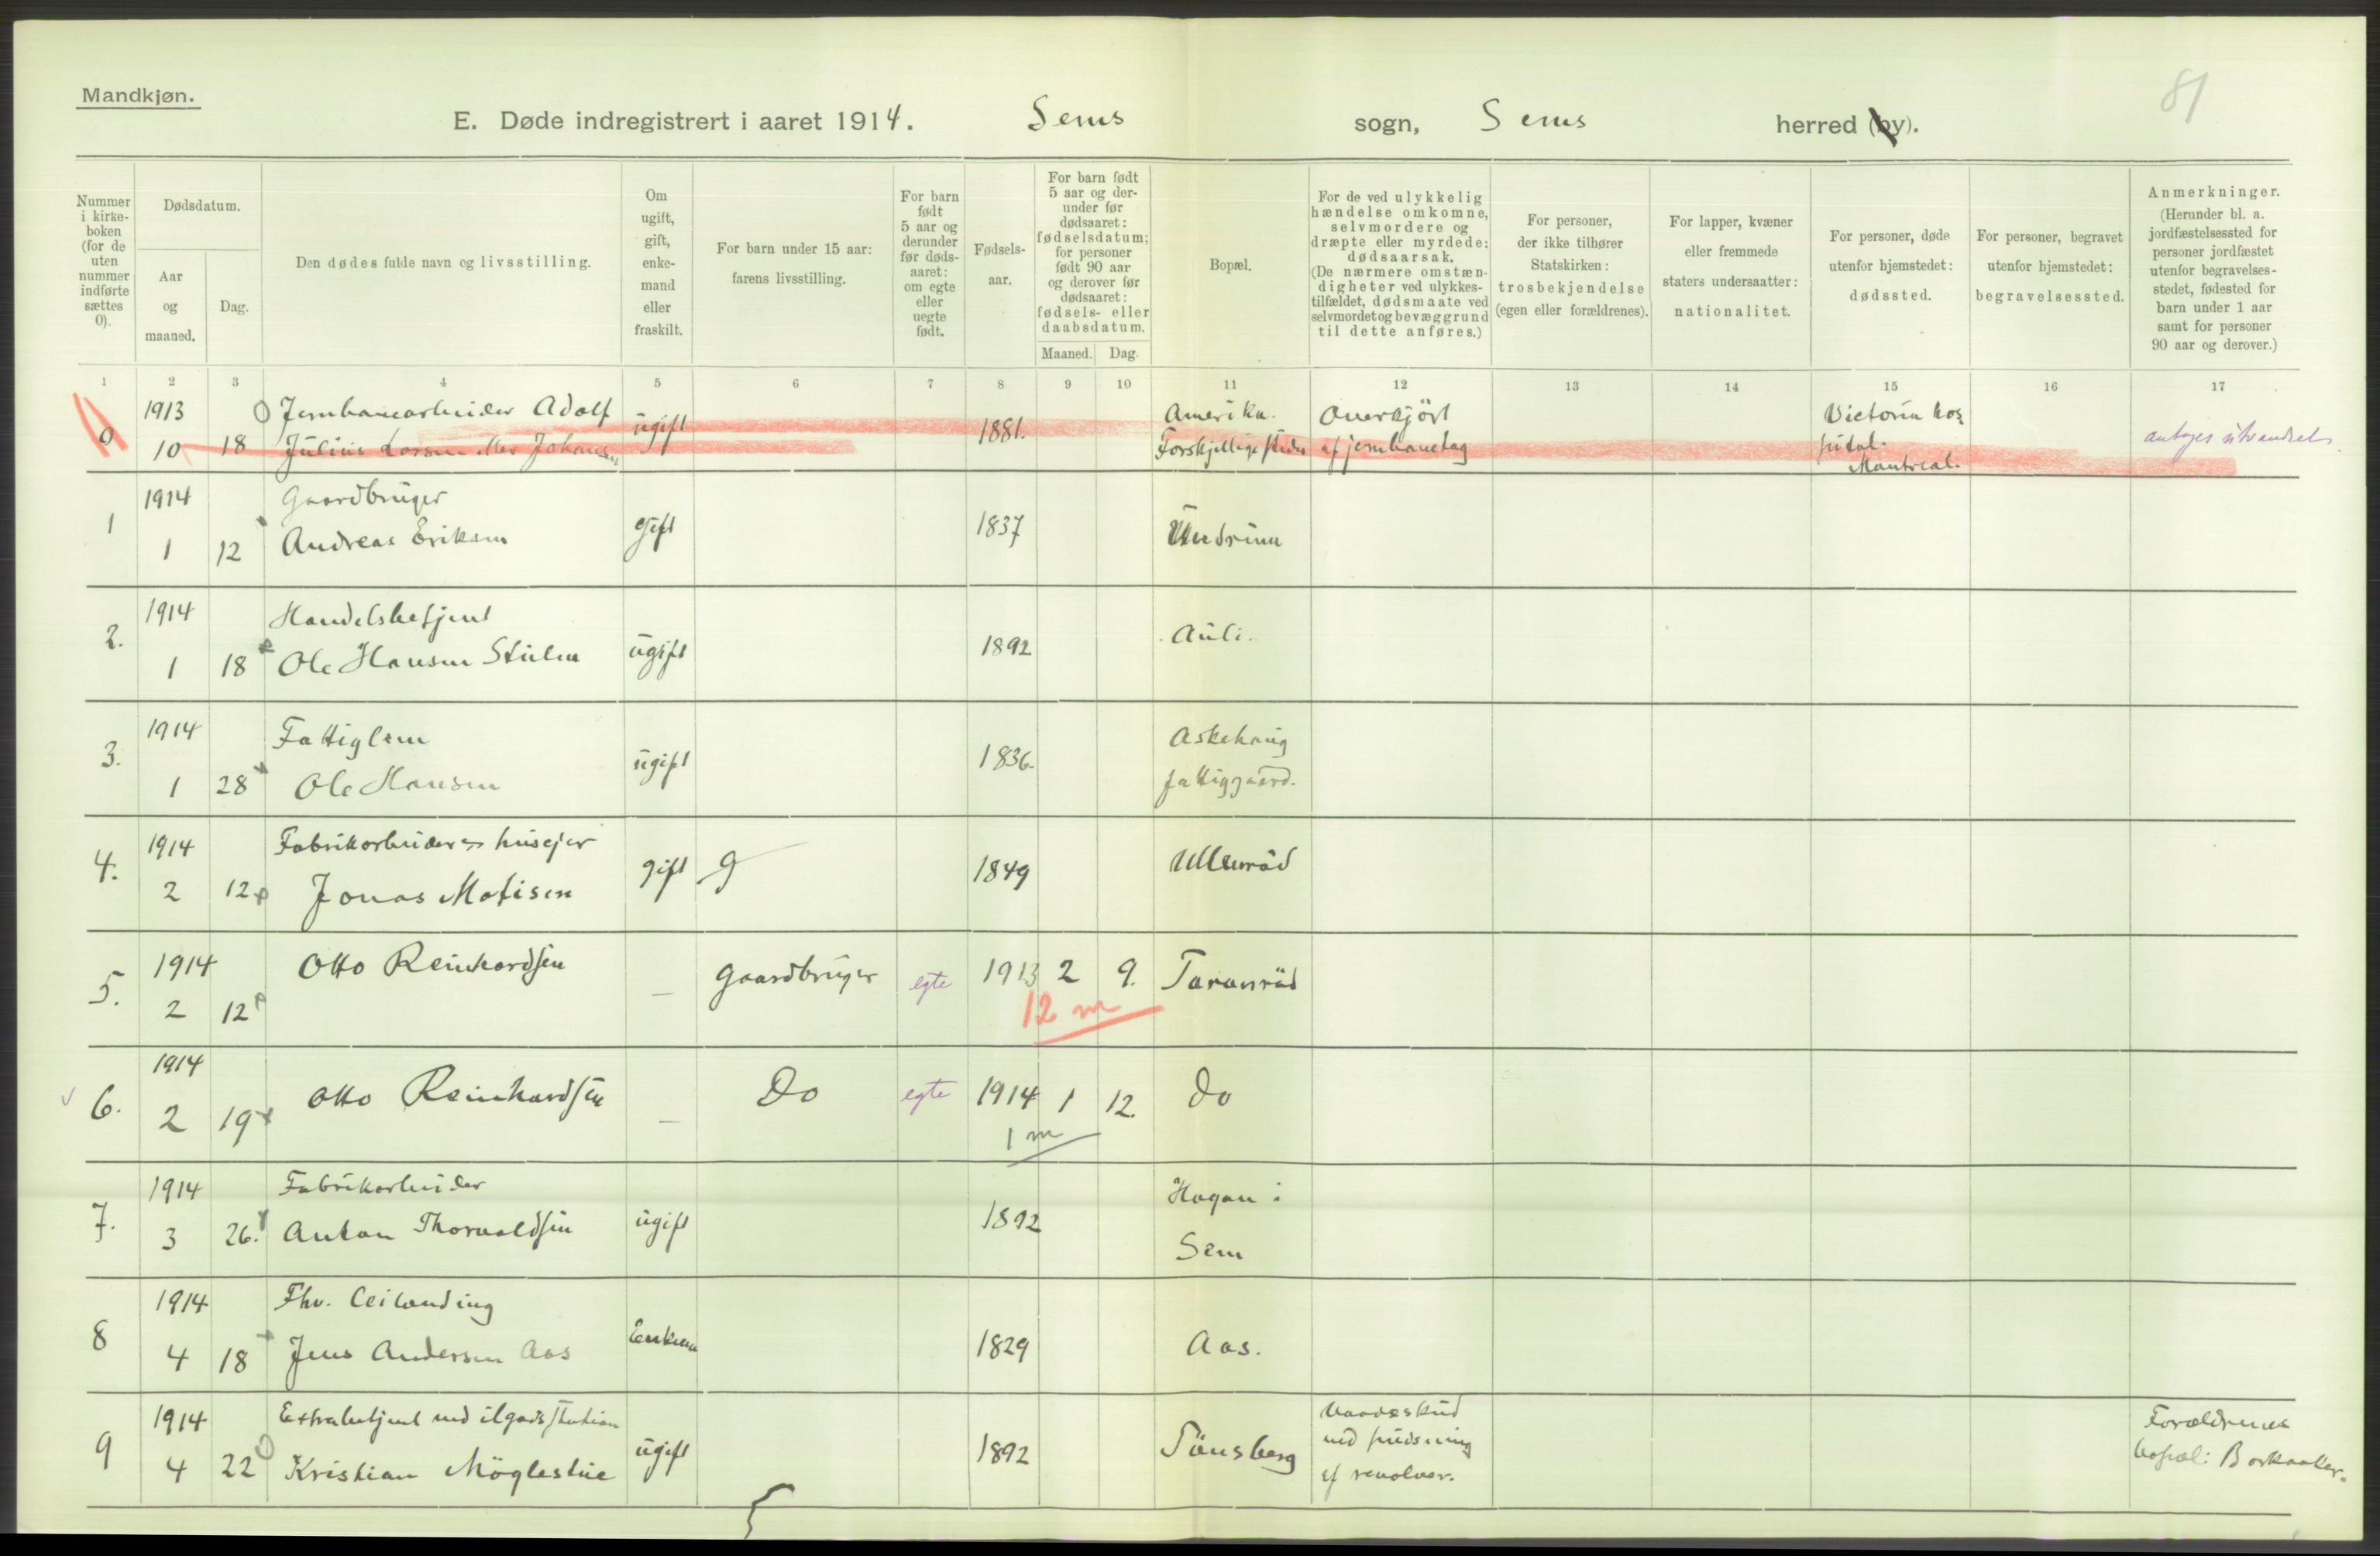 81
Mandkjøn.
E. Døde indregistrert i aaret 1914. Sems sogn, Sems herred (by).
Nummer i kirke-boken (for de uten nummer indførte sættes 0).
Dødsdatum.
Aar og maaned.
Dag.
Den dødes fulde navn og livsstilling.
Om ugift, gift, enke-mand eller fraskilt.
For barn under 15 aar: farens livsstilling.
For barn født 5 aar og derunder før døds-aaret: om egte eller uegte født.
Fødsels-aar.
For barn født 5 aar og der-under før dødsaaret: fødselsdatum; for personer født 90 aar og derover før dødsaaret: fødsels- eller daabsdatum.
Maaned. Dag.
Bopæl.
For de ved ulykkelig hændelse omkomne, selvmordere og dræpte eller myrdede: dødsaarsak. (De nærmere omstæn-digheter ved ulykkes-tilfældet, dødsmaate ved selvmordet og bevæggrund til dette anføres.)
For personer, der ikke tilhører Statskirken: trosbekjendelse (egen eller forældrenes).
For lapper, kvæner eller fremmede staters undersaatter: nationalitet.
For personer, døde utenfor hjemstedet: dødssted.
For personer, begravet utenfor hjemstedet: begravelsessted.
Anmerkninger. (Herunder bl. a. jordfæstelsessted for personer jordfæstet utenfor begravelses-stedet, fødested for barn under 1 aar samt for personer 90 aar og derover.)
1 2 3 4 5 6 7 8 9 10 11 12 13 14 15 16 17
0 1913 10 18 Jernbanearbeider Adolf Julius Larsen eller Johansen ugift 1881. Amerika. Forskjellige steder Overkjört af jernbanetog Victoria hospital. Montreal. antages utvandret
1 1914 1 12 Gaardbruger Andreas Eriksen gift 1837 Undrum
2. 1914 1 18 Handelsbetjent Ole Hansen Stulen ugift 1892 Auli.
3. 1914 1 28 Fattiglem Ole Hansen ugift 1836. Askehaug fattiggaard.
4. 1914 2 12 Fabrikarbeider og husejer Jonas Matisen gift g 1849 Ullevråd
5. 1914 2 12 Otto Reinhardsen — Gaardbruger egte 1913 2 9. Taranråd
12 m
6. 1914 2 19 Otto Reinhardsen — Do egte 1914 1 12. Do
1 m
7. 1914 3 26. Fabrikarbeider Anton Thorvaldsen ugift 1892 Hogan i Sem
8 1914 4 18 Fhv. Jens Andersen Aas Enkem 1829 Aas.
9 1914 4 22 Extrabetjent ved ilgodsstation Kristian Möglestue ugift 1892 Tönsberg Vaadeskud ved pudsning af revolver. Forældrenes bopæl: Borkaaker.